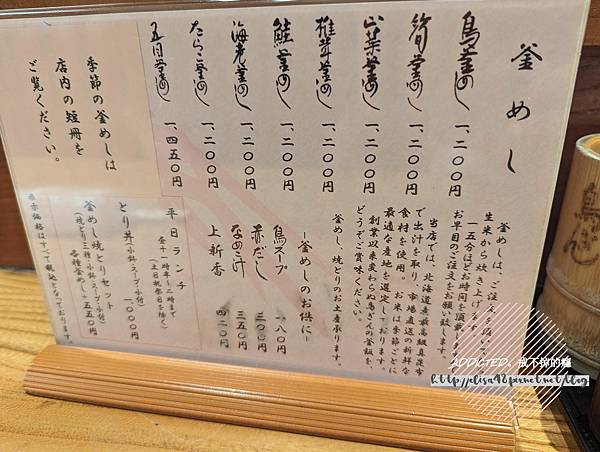 釜めし
鳥釜めし 一、二〇〇円
筍釜めし 一、二〇〇円
山菜釜めし 一、二〇〇円
椎茸釜めし 一、二〇〇円
鮭釜めし 一、二〇〇円
海老釜めし 一、二〇〇円
たらこ釜めし 一、二〇〇円
五目釜めし 一、四五〇円
季節の釜めしは
店内の短冊を
ご覧ください。
釜めしは、ご注文を頂いて
生米から炊き上げます。
一五分ほどお時間を頂戴
お早目のご注文をお願い致します。
当店では、北海道産最高級真昆布
で出汁を取り、市場直送の新鮮な
食材を使用。お米は季節ごとに
最適な産地を選定しております。
創業以来変わらぬ鳥ぎんの釜飯を、
どうぞご賞味ください。
釜めし、焼とりのお土産承ります。
―釜めしのお供に―
鳥スープ 一八〇円
赤だし 三〇〇円
なめこ汁 三五〇円
上新香 四二〇円
平日ランチ
十一時半〜二時まで
(土日祝祭日を除く)
とり丼(小鉢・スープ・小付) 一、〇〇〇円
釜めし焼とりセット
(焼とり三種・小鉢・スープ・小付)
各種釜めし+五五〇円
表示価格はすべて税込となっております
鳥ぎん
ADDICTED、戒不掉的癮
http://elisa98.pixnet.net/blog